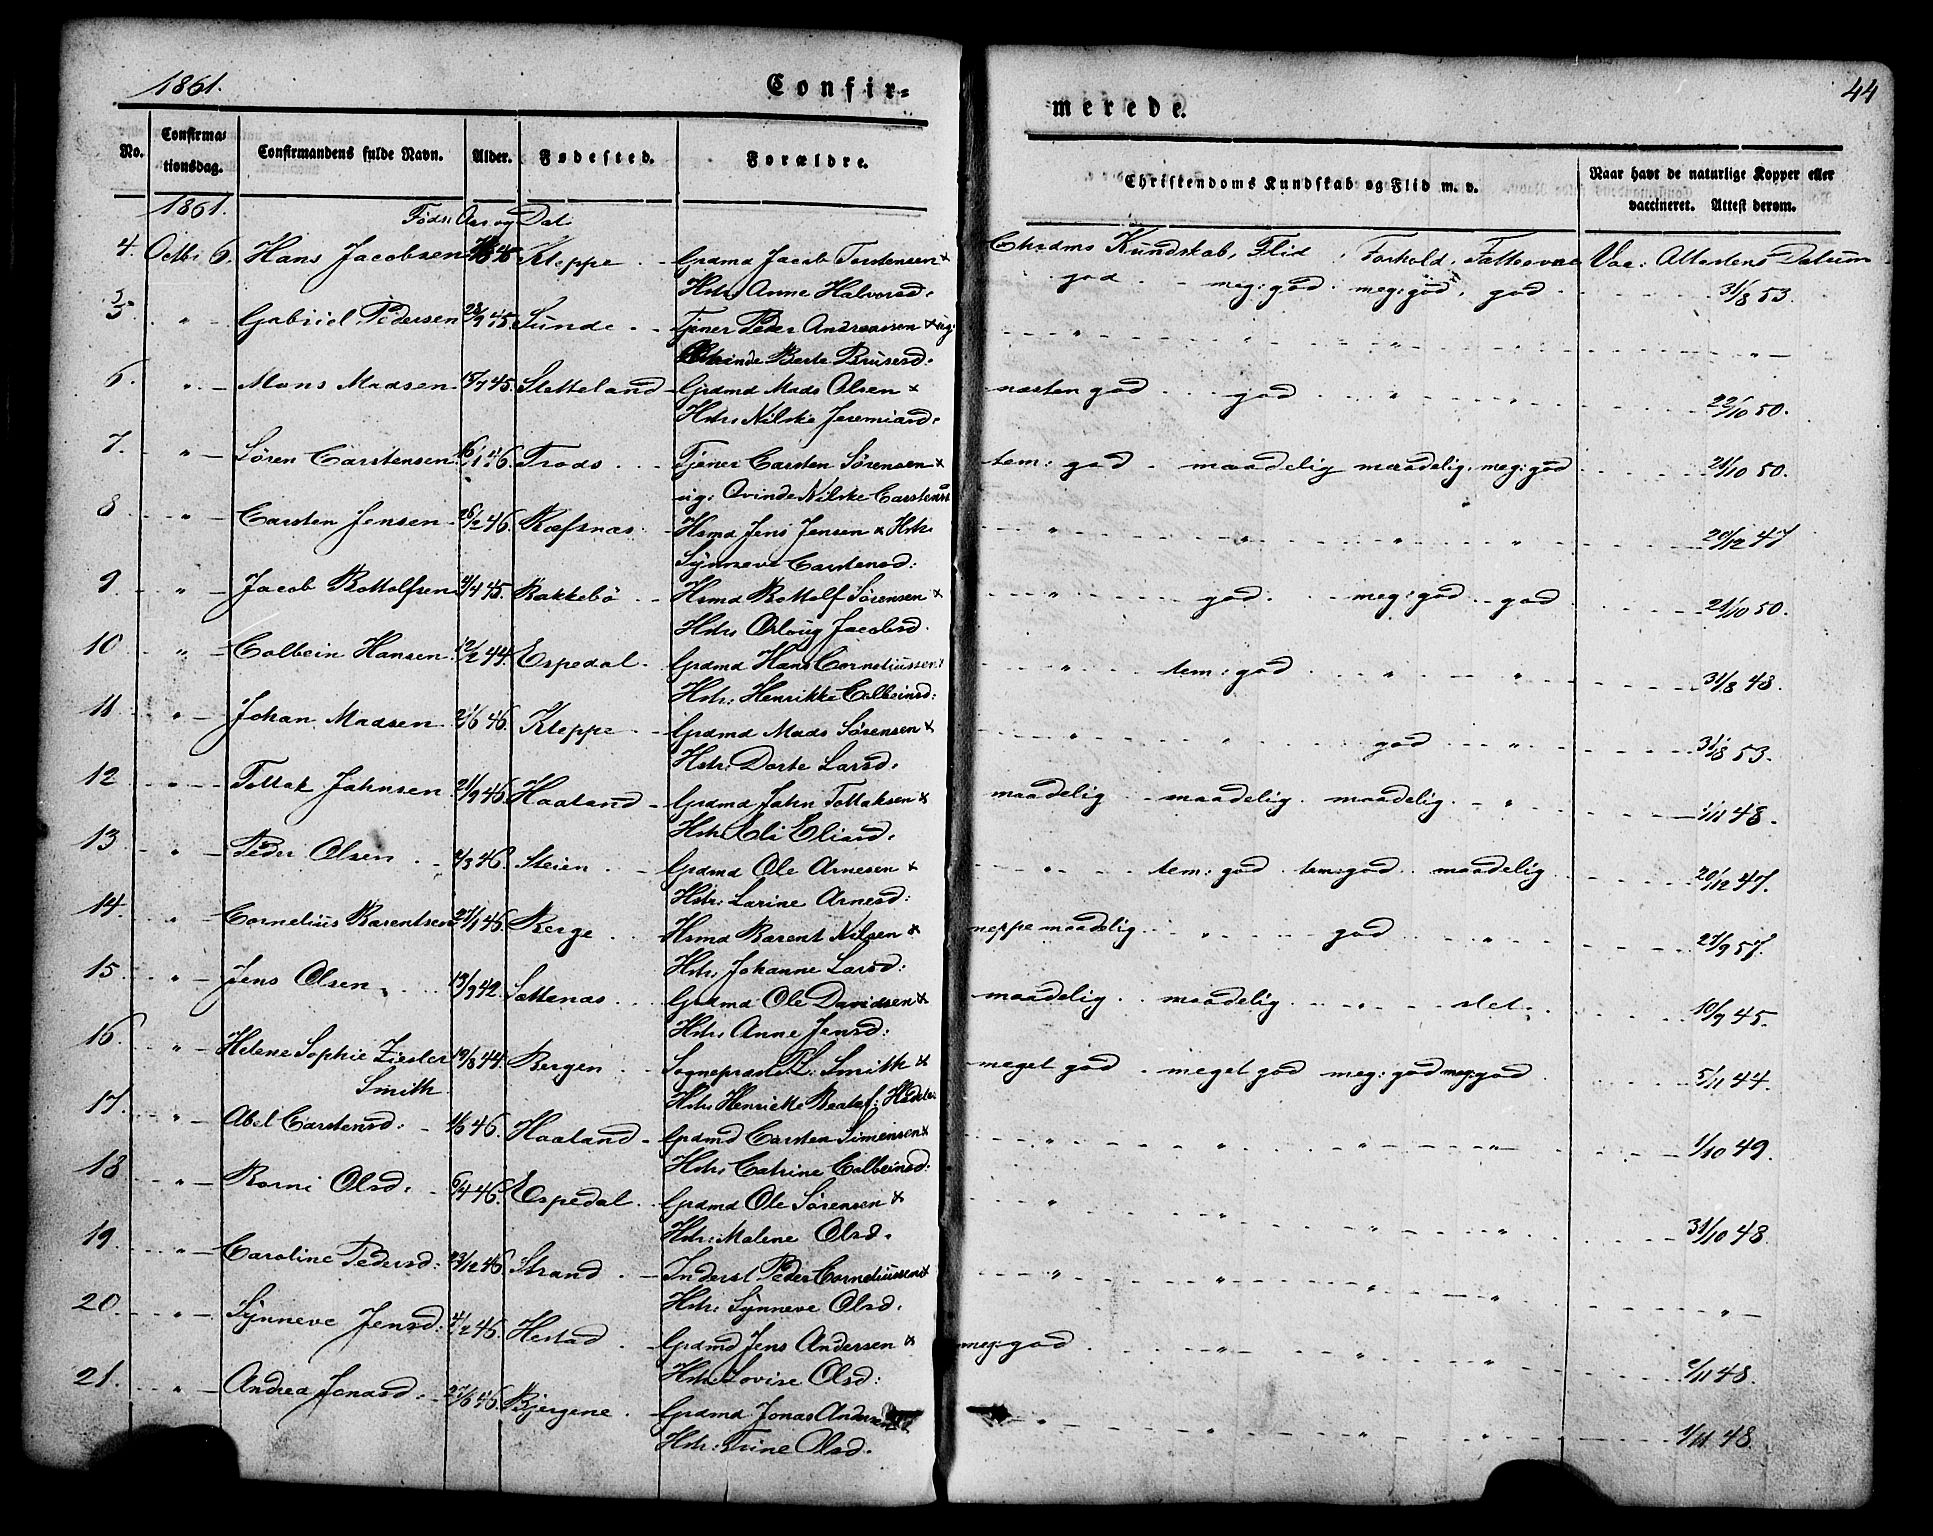 1861.
Confir=
merede.
44
No.
Confirma=
tionsdag.
Confirmandens fulde Navn.
Alder.
Fødested.
Forældre.
Christendoms Kundskab og Flid m. v.
Naar havt de naturlige Kopper eller
vaccineret. Attest derom.
1861.
Føds: Aar og Dat.
Chrdms Kundskab, Flid, Forhold, Fatteevne Vac: Attestens Datum
4. Octbr 6. Hans Jacobsen Kleppe Grdmd Jacob Torstensen &
Hstr: Anne Halvorsd: god meg: god meg: god, god 31/8 53.
5 " Gabriel Pedersen 28/9 45. Sunde Tjener Peder Andreassen & ug:
Qvinde Berte Brusesd: " " " "
6. " Mons Madsen 15/7 45. Stetteland Grdmd Mads Olsen &
Hstr: Nilske Jeremiasd: næsten god god " " 22/10 50.
7. " Søren Carstensen 16/1 46. Trods Tjener Carsten Sørensen &
ug: Qvinde Nilske Carstensd tem: god maadelig maadelig meg: god 21/10 50.
8 " Carsten Jensen 26/2 46. Ræfsnæs Hsmd Jens Jensen & Hstr.
Synneve Carstensd: " " " " 20/12 47
9. " Jacob Bottolfsen 4/4 45. Bakkebö Hsmd Bottolf Sørensen &
Hstr: Orloug Jacobsd. " god. meg: god god 21/10 50.
10 " Colbein Hansen 12/2 44. Espedal Grdmd Hans Corneliussen &
Hstr: Henrikke Colbeinsd: " tem: god " " 31/8 48.
11 " Johan Madsen 21/6 46. Kleppe Grdmd Mads Sørensen &
Hstr: Dorte Larsd: " " god " 31/8 53.
12 " Tollak Johnsen 21/9 46. Haaland Grdmd John Tollaksen &
Hstr Eli Eliasd: maadelig maadelig. maadelig. " 1/11 48.
13 " Peder Olsen 2/3 46. Steien Grdmd Ole Arnesen &
Hstr: Larine Arnesd: " tem: god tem: god maadelig 20/12 47.
14. " Cornelius Barentsen 21/1 46. Berge Hsmd Barent Nilsen &
Hstr: Johanne Larsd: neppe maadelig " god " 27/9 57.
15. " Jens Olsen 13/9 42. Sættenæs Grdmd Ole Davidsen &
Hstr: Anne Jensd: maadelig maadelig " slet. 10/9 45.
16. " Helene Sophie Zisler 19/8 44. Bergen Sognepræst L: Smith &
Smith Hstr: Henriette Beate f: meget god meget god meg: god meg: god 5/11 44.
17. " Abel Carstensd: 1/6 46. Haaland Grdmd Carsten Simensen &
Hstr: Catrine Colbeinsd: " " " 1/10 49.
18 " Borni Olsd: 6/4 46. Espedal Grdmd Ole Sørensen &
Hstr: Malene Olsd: " " " " 31/10 48.
19. " Caroline Pedersd: 23/12 46 Strand Inderst Peder Corneliussen &
Hstr: Synneve Olsd: " " " " "
20. " Synneve Jensd: 4/2 46. Hestad Grdmd Jens Andersen &
Hstr: Lovise Olsd: meg: god " " " 2/11 48.
21. " Andrea Jonasd: 27/6 46. Bjergene Grdmd Jonas Andersen
Hstr: Trine Olsd: " " " " 1/11 48.